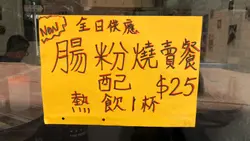 New 全日供應
腸粉燒賣餐
配 $25
熱飲1杯